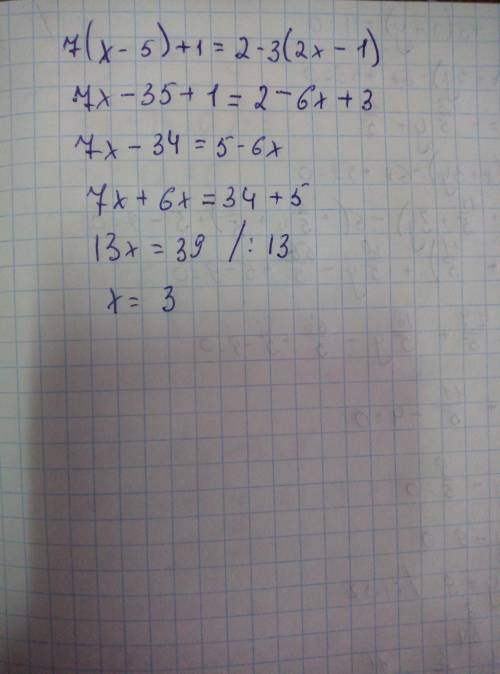 7(x - 5) + 1 = 2 - 3(2x - 1)
7x - 35 + 1 = 2 - 6x + 3
7x - 34 = 5 - 6x
7x + 6x = 34 + 5
13x = 39 /: 13
x = 3